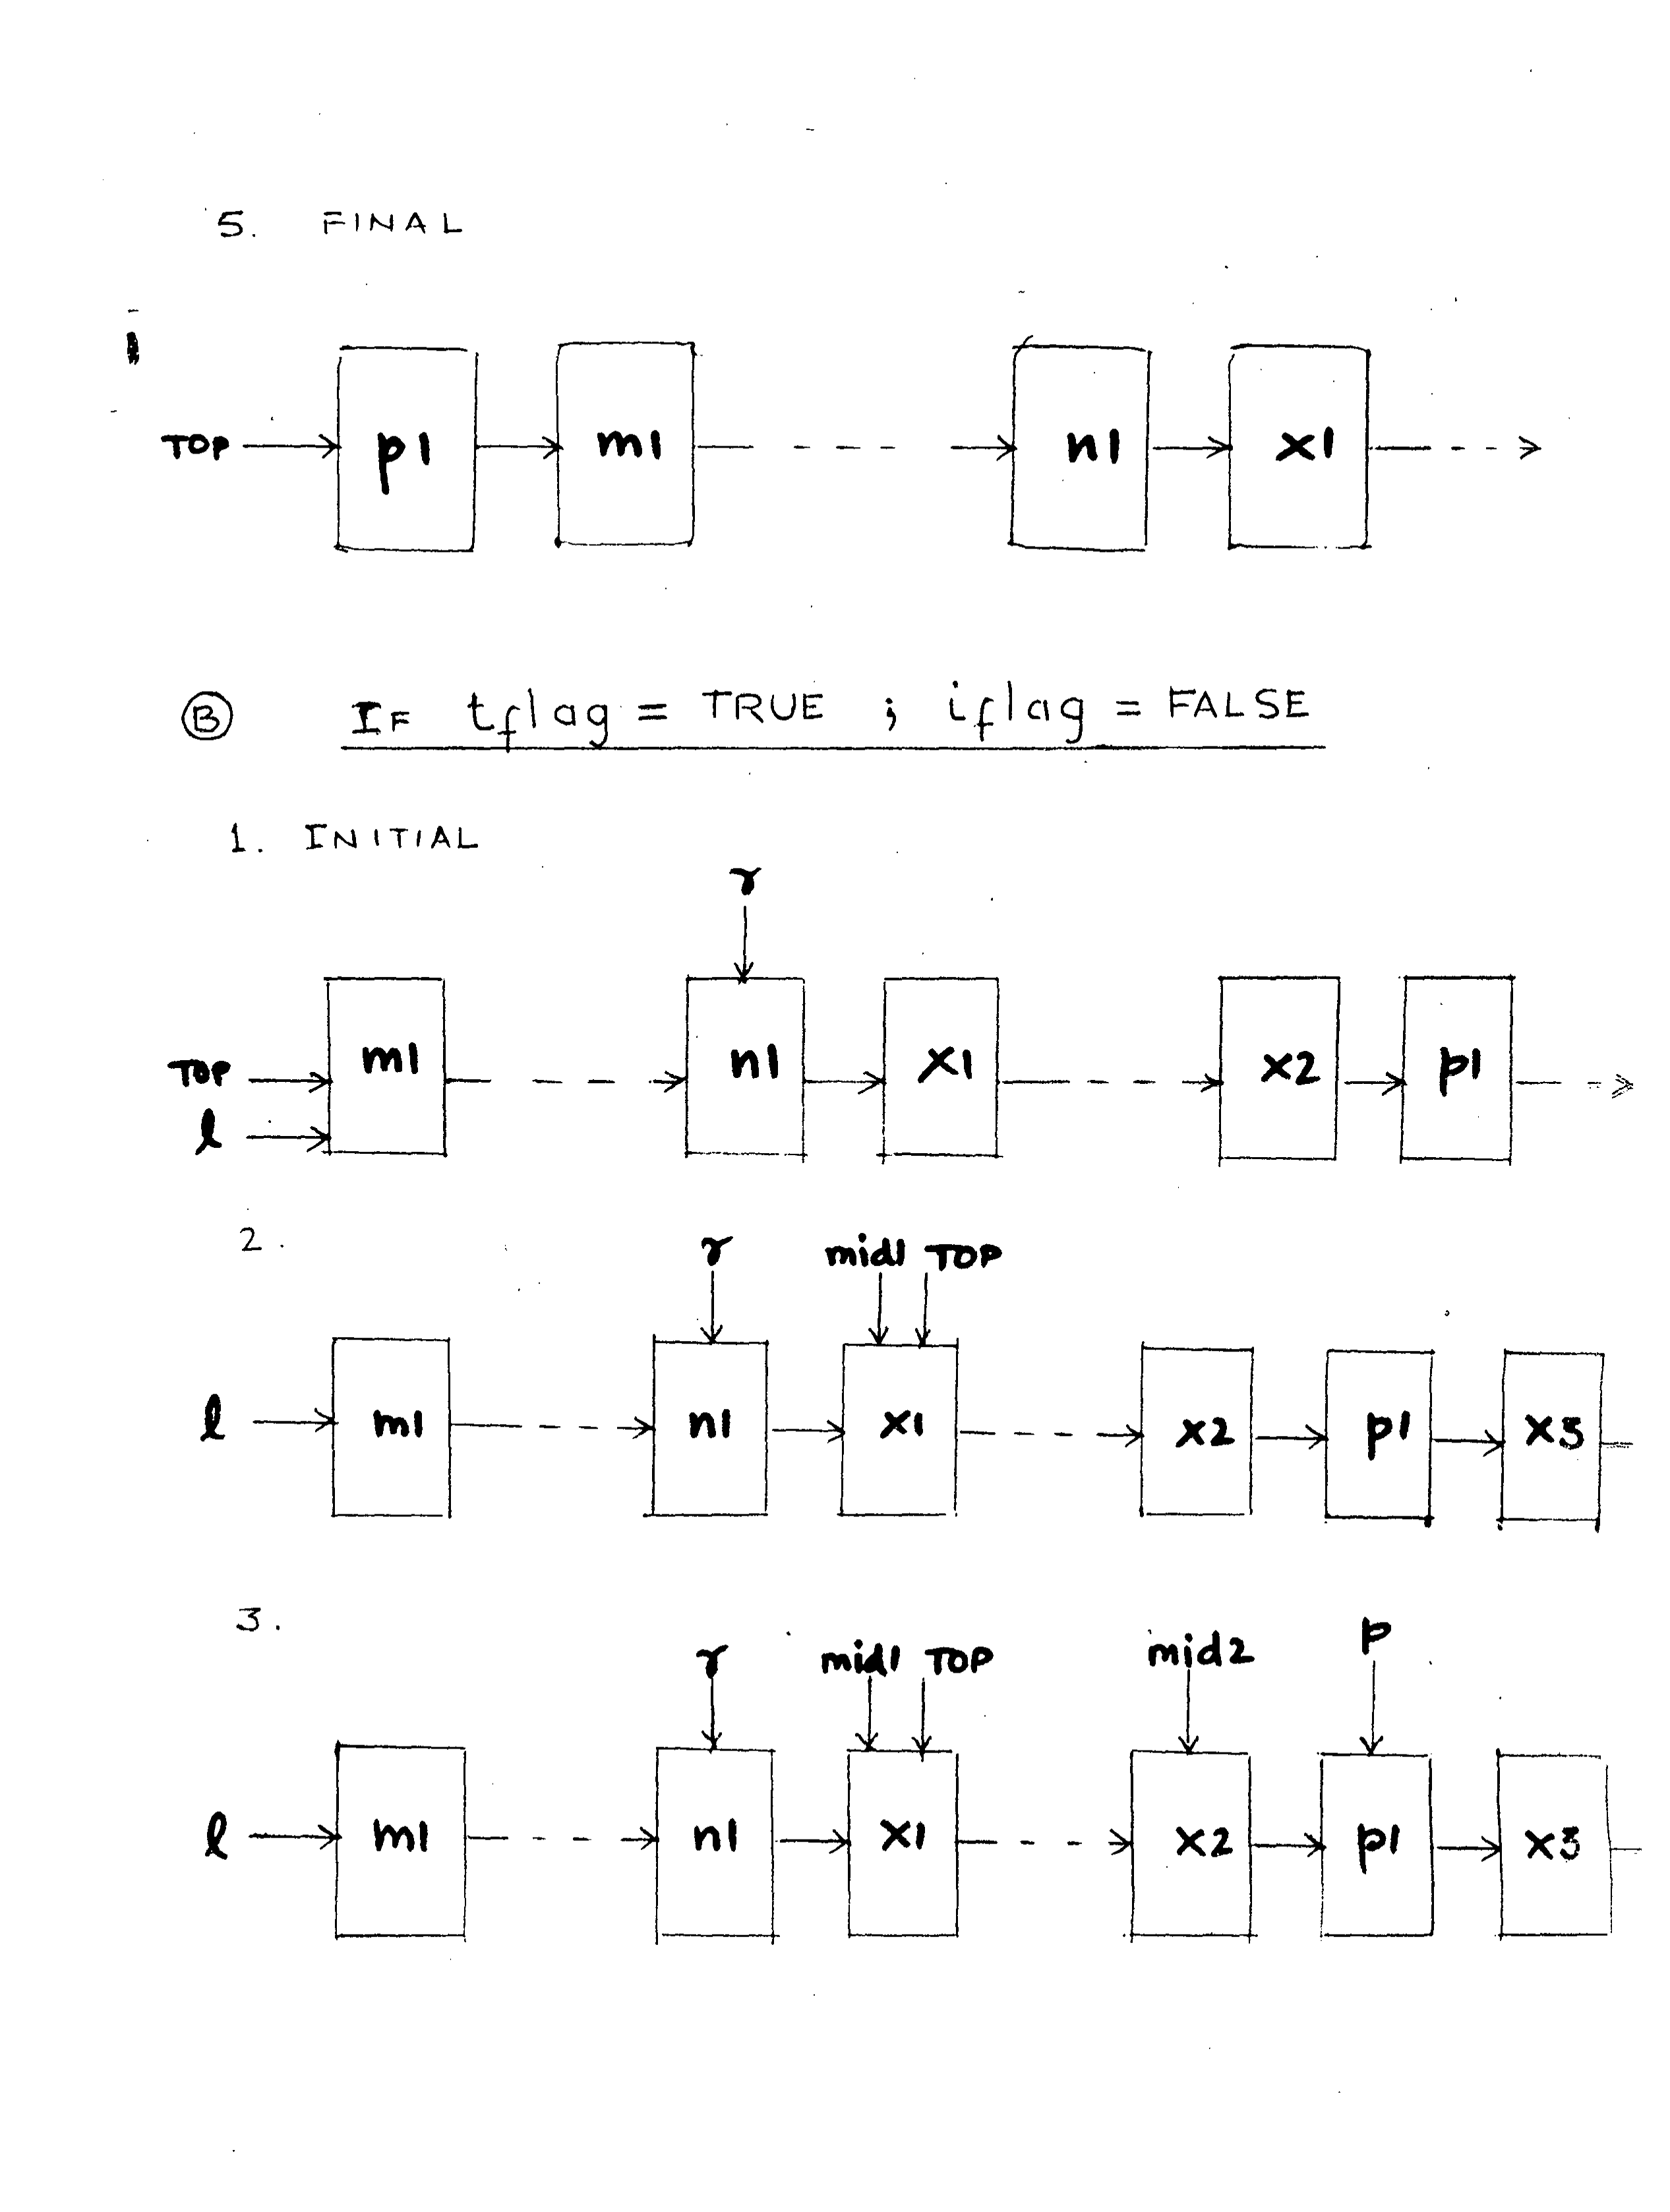 5. FINAL
TOP p1 m1 n1 x1
B IF tflag = TRUE ; iflag = FALSE
1. INITIAL
r
TOP m1 n1 x1 x2 p1
l
2.
r mid1 TOP
l m1 n1 x1 x2 p1 x3
3.
r mid1 TOP mid2 p
l m1 n1 x1 x2 p1 x3